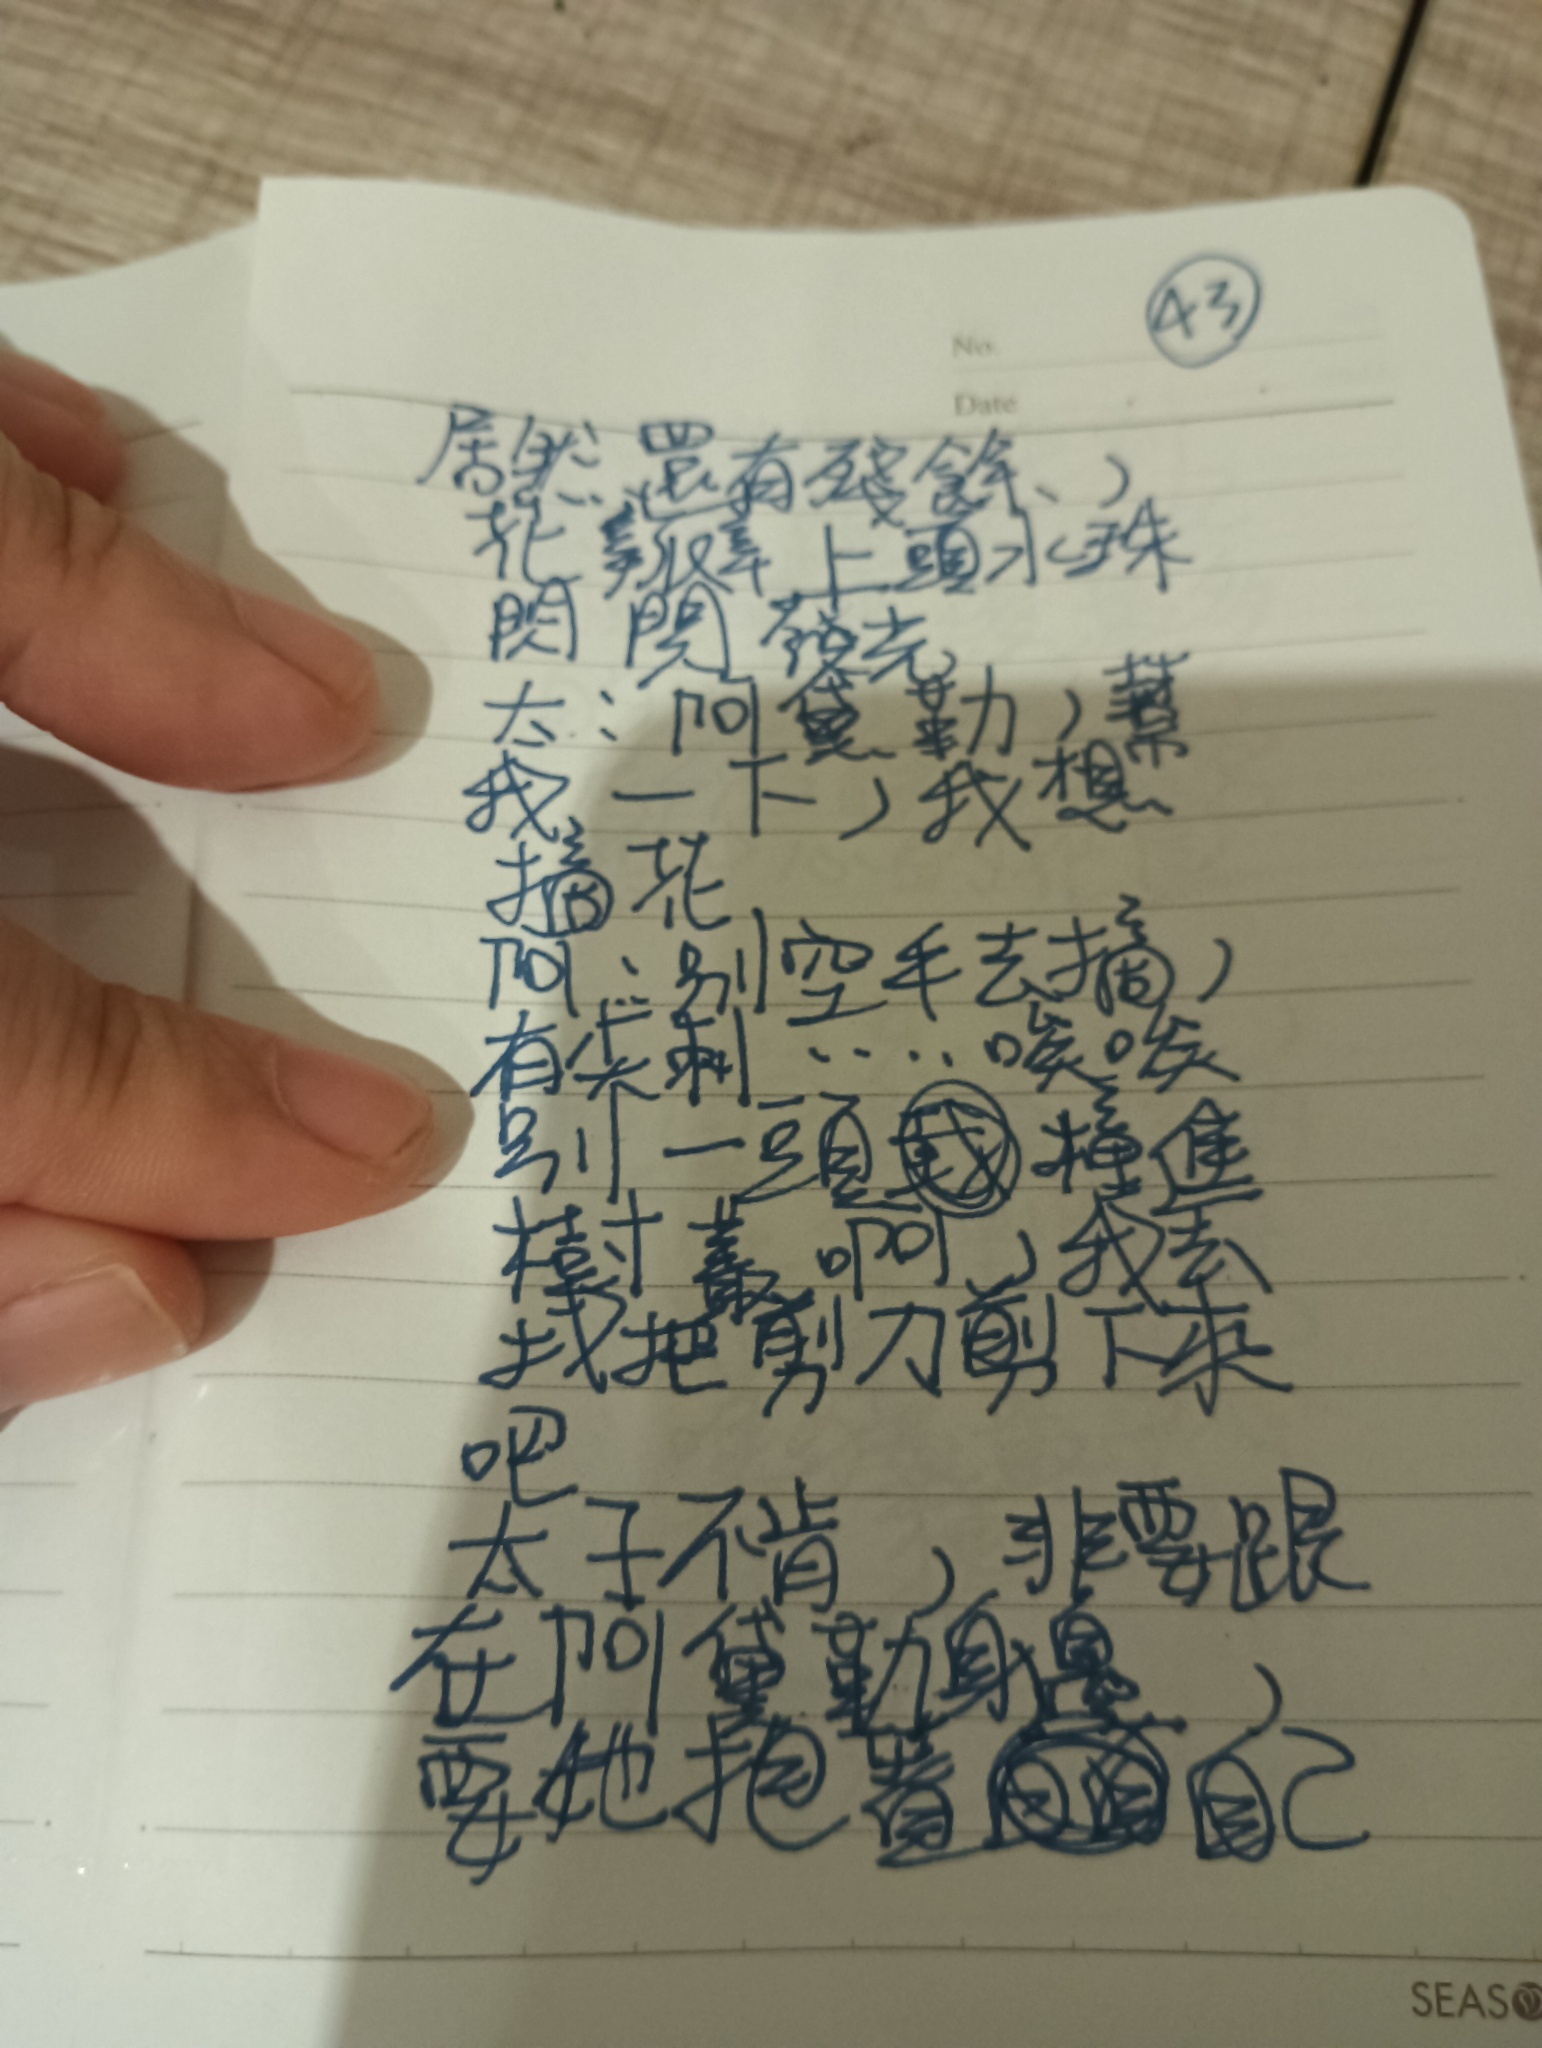 43
No.
Date
居然還有殘餘、,
花瓣上頭水珠
閃閃發光
太:阿黛勒,幫
我一下,我想
摘花
阿:別空手去摘,
有尖刺……唉唉
別一頭撞進
樹叢啊,我去
找把剪刀剪下來
吧
太子不肯,非要跟
在阿黛勒身邊,
要她抱著自己
SEASO